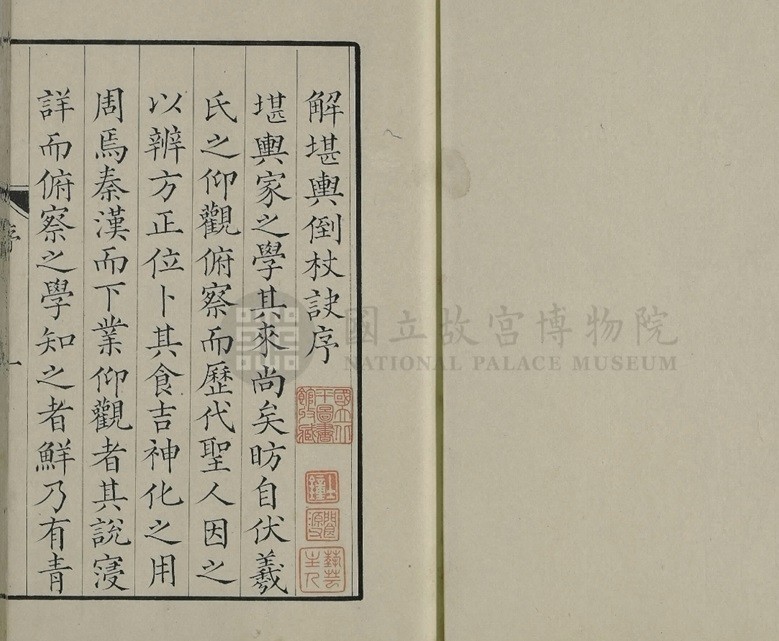 解堪輿倒杖訣序
堪輿家之學其來尚矣昉自伏羲
氏之仰觀俯察而歷代聖人因之
以辨方正位卜其食吉神化之用
周焉秦漢而下業仰觀者其說寖
詳而俯察之學知之者鮮乃有青
國立北
平圖書
館收藏
士鐘
閬源
藝芸
主人
序
一
國立故宮博物院
NATIONAL PALACE MUSEUM